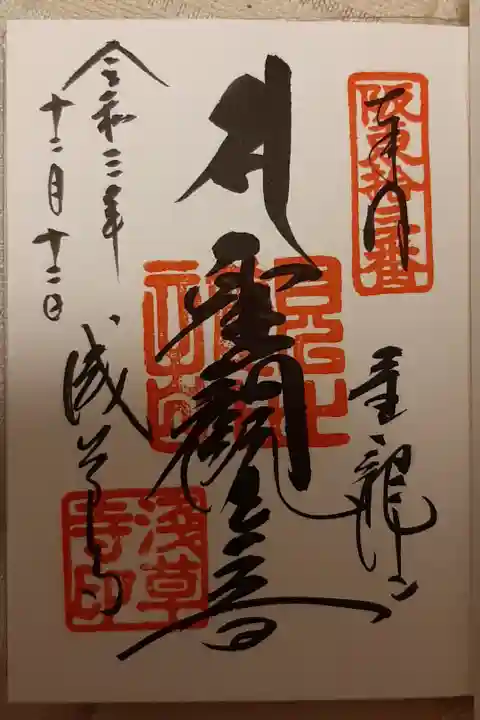 奉拝
阪東拾三番
金龍山
聖観世音
浅草寺
浅草寺印
令和三年
十二月十二日